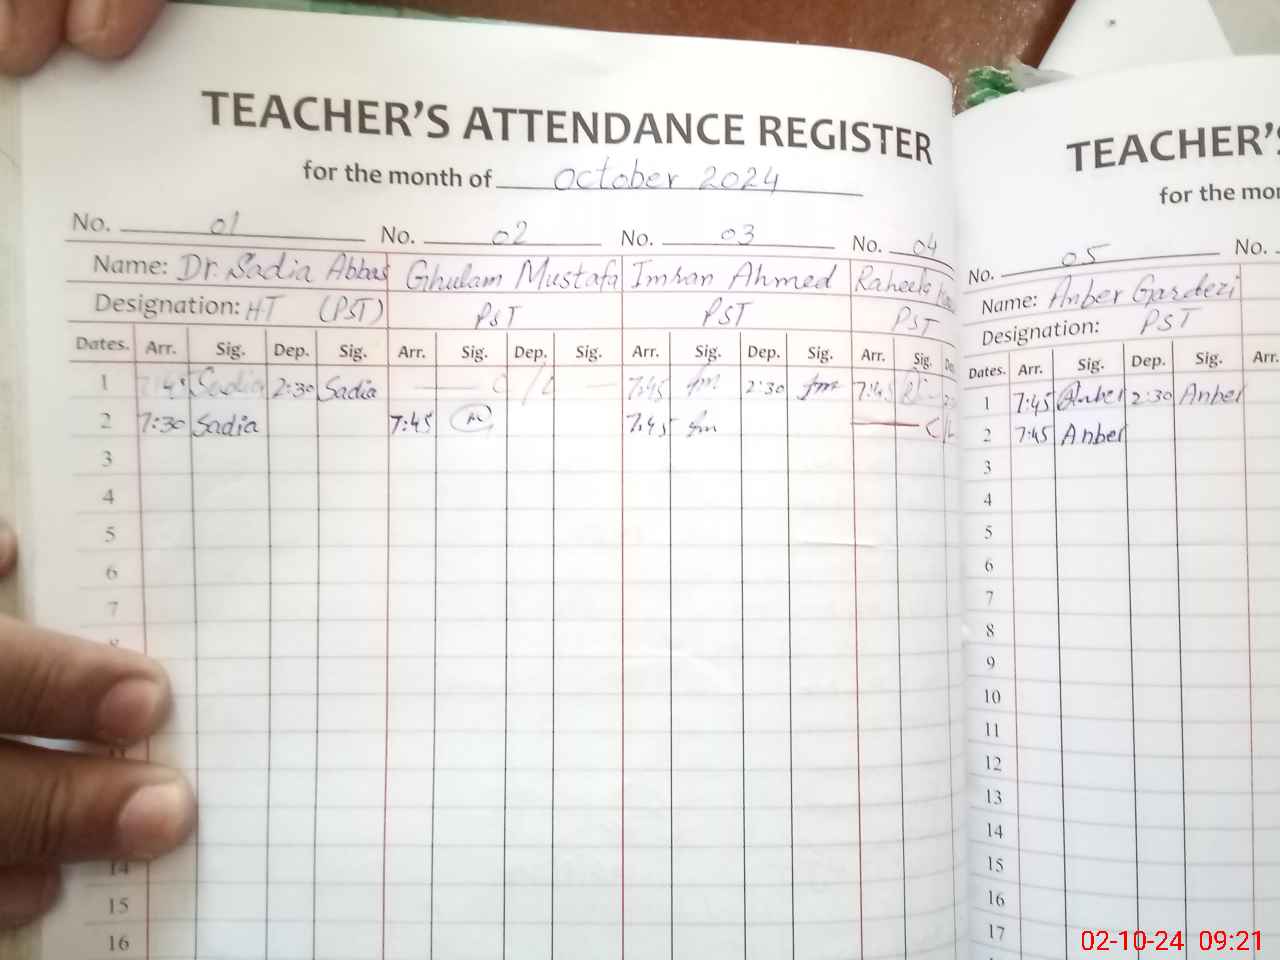 TEACHER'S ATTENDANCE REGISTER
for the month of October 2024
No. 01 No. 02 No. 03 No. 04
Name: Dr. Sadia Abbas Ghulam Mustafa Imran Ahmed Raheela
Designation: HT (PST) PST PST PST
Dates. Arr. Sig. Dep. Sig. Arr. Sig. Dep. Sig. Arr. Sig. Dep. Sig. Arr. Sig.
1 7:45 Sadia 2:30 Sadia C/L 7:45 2:30 7:45
2 7:30 Sadia 7:45 7:45 C/L
3
4
5
6
7
14
15
16
TEACHER'S
for the mon
No. 05 No.
Name: Anber Gardezi
Designation: PST
Dates. Arr. Sig. Dep. Sig. Arr.
1 7:45 Anber 2:30 Anber
2 7:45 Anber
3
4
5
6
7
8
9
10
11
12
13
14
15
16
17
02-10-24 09:21